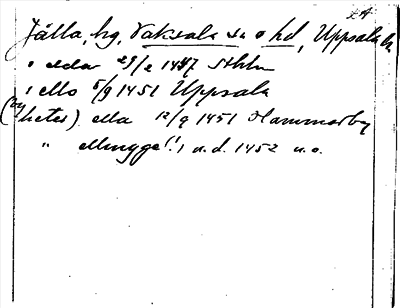 Jälla, hg, Vaksala sn o hd, Uppsala l.
i ella 29/2 1447 Sthlm
i ello 5/9 1451 Uppsala
(hetes) ella 12/9 1451 Hammarby
" u.d. 1452 u.o.